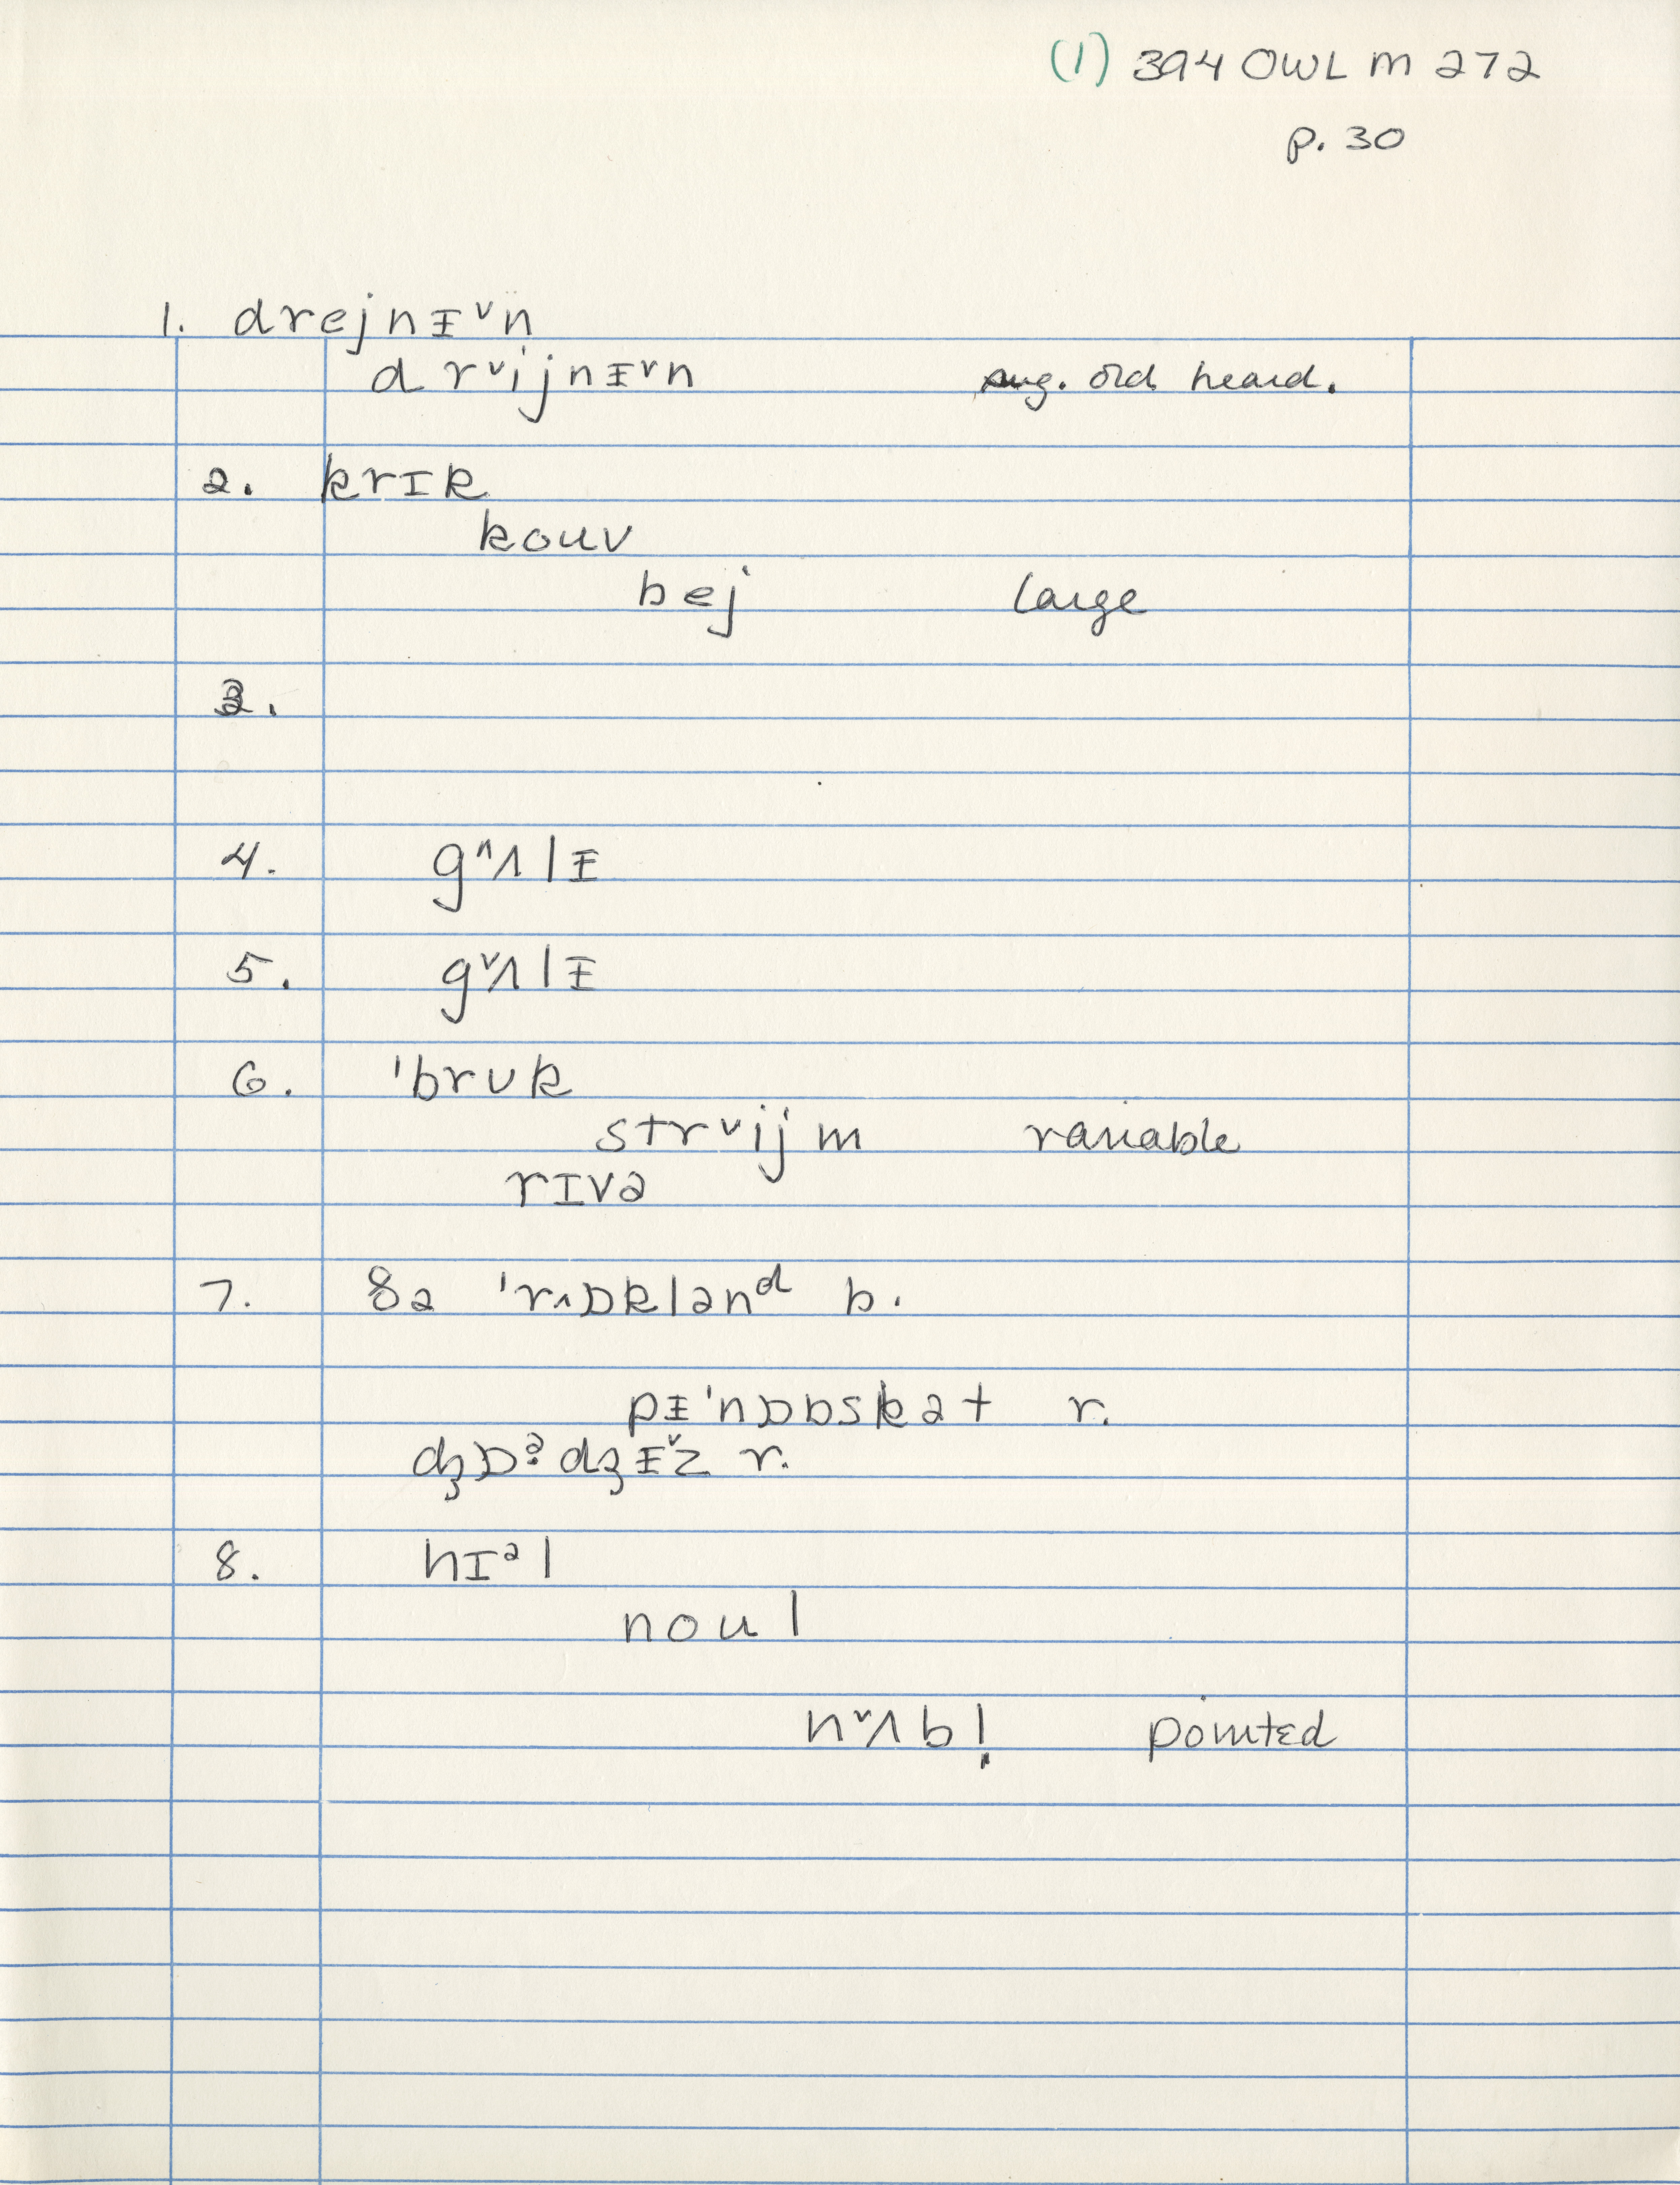 (1) 394 OWL m 272
p. 30
1. drejnᵻ˅n
drᵛijnᵻ˅n sug. old heard.
2. krɪk
kouv
bej large
3.
4. g˄ʌlᵻ
5. g˅ʌlᵻ
6. 'brʊk
strᵛijm variable
rɪvə
7. ðə 'r˄ɒklənᵈ b.
pᵻ'nɒbskət r.
dʒɒˀdʒᵻ˅z r.
8. hɪᵊl
noul
n˅ʌbl̩ pointed